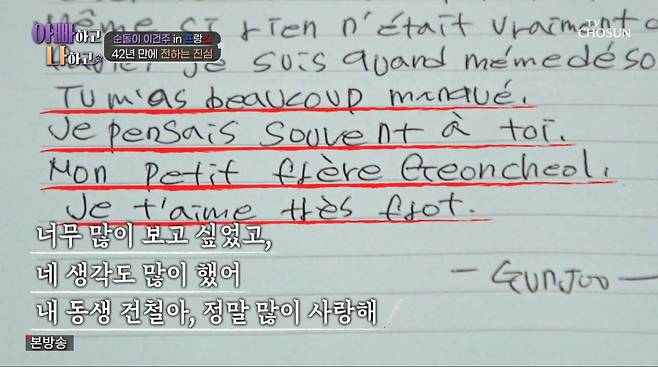 아빠하고
나하고
순돌이 이건주 in 프랑스
42년 만에 전하는 진심
TV CHOSUN
Même si rien n'était vraiment
je suis quand même déso
Tu m'as beaucoup manqué.
Je pensais souvent à toi.
Mon petit frère Geoncheol.
Je t'aime très frot.
너무 많이 보고 싶었고,
네 생각도 많이 했어
— GUNJOO —
내 동생 건철아, 정말 많이 사랑해
본방송